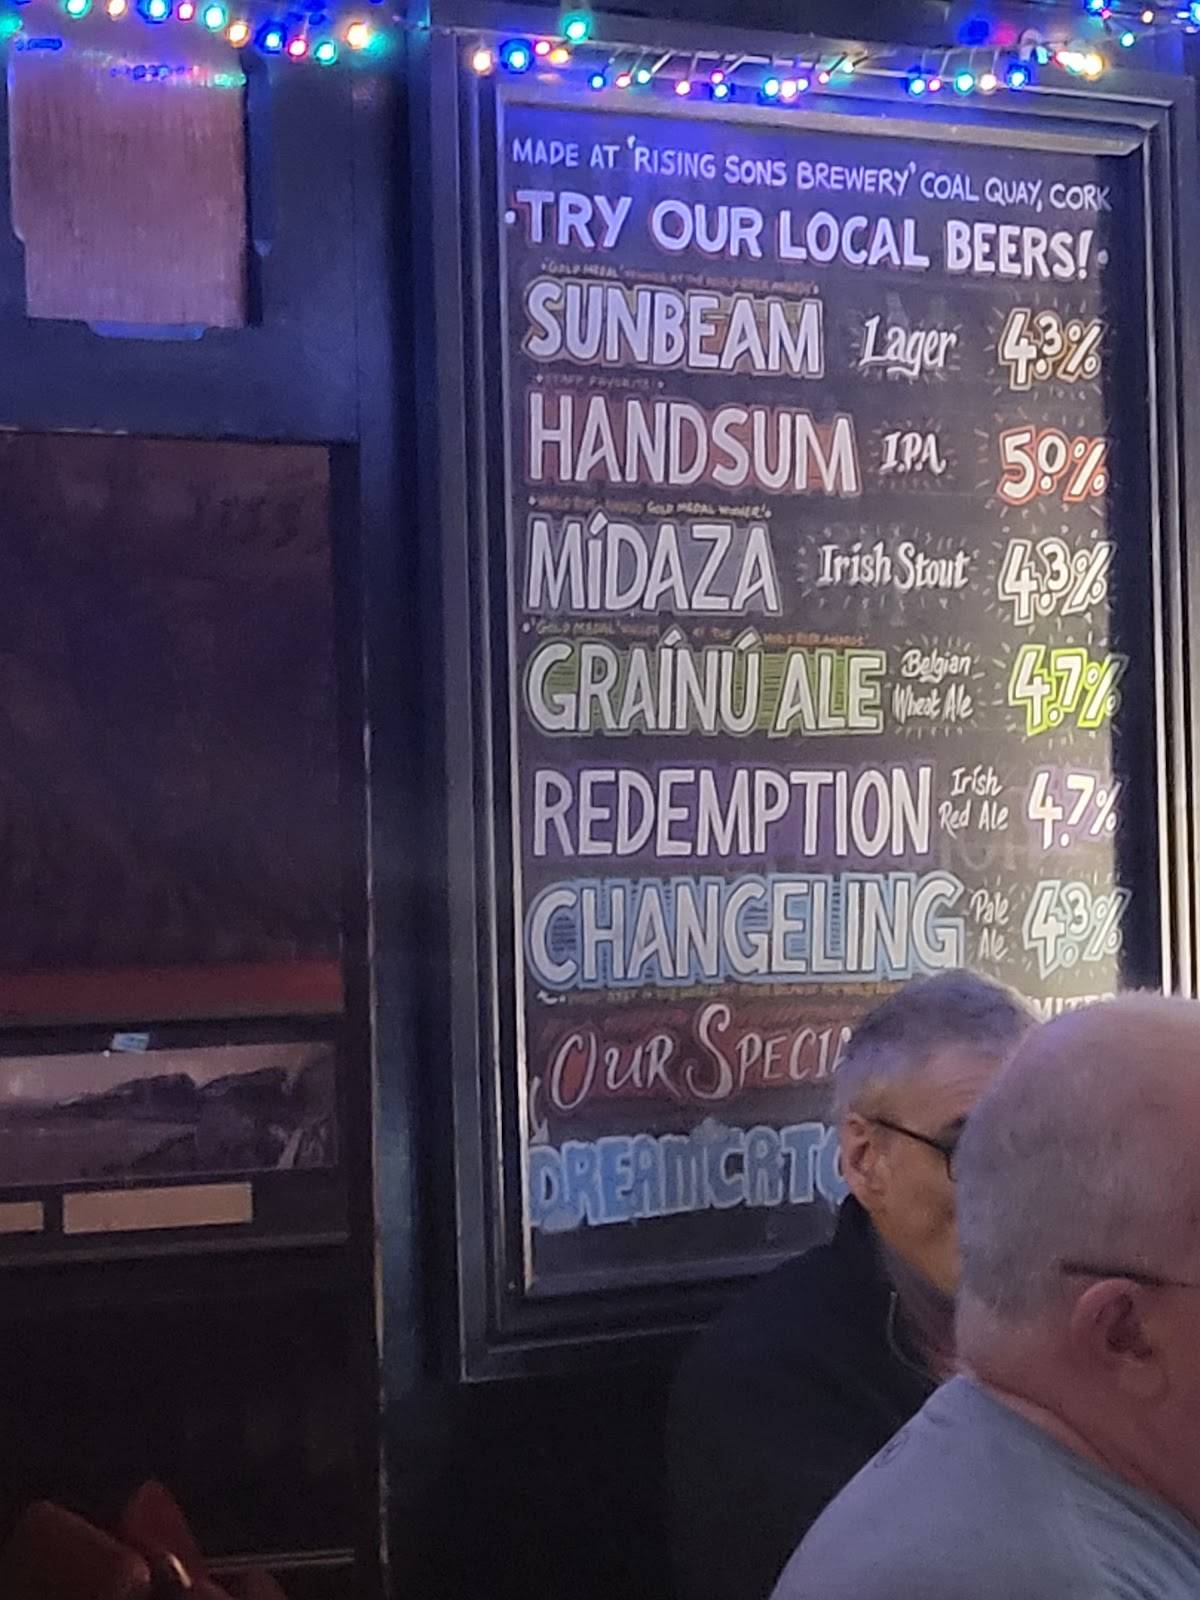 MADE AT 'RISING SONS BREWERY' COAL QUAY, CORK
·TRY OUR LOCAL BEERS!·
'GOLD MEDAL' WINNER AT THE WORLD BEER AWARDS
SUNBEAM Lager 4.3%
STAFF FAVORITE!
HANDSUM I.P.A. 5.0%
GOLD MEDAL WINNER'
MÍDAZA Irish Stout 4.3%
'GOLD MEDAL' WINNER AT THE WORLD BEER AWARDS
GRAÍNÚ ALE Belgian Wheat Ale 4.7%
REDEMPTION Irish Red Ale 4.7%
CHANGELING Pale Ale 4.3%
OUR SPECIA
DREAMCATC